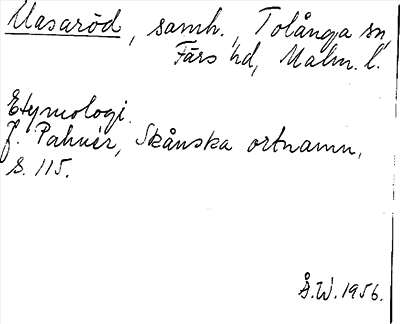 Masaröd, samh., Tolånga sn,
Färs hd, Malm. l.
Etymologi.
J. Pahnér, Skånska ortnamn,
s. 115.
Å.W. 1956.